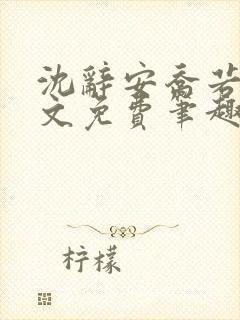 沈辞安乔若
文免费笔趣
柠檬